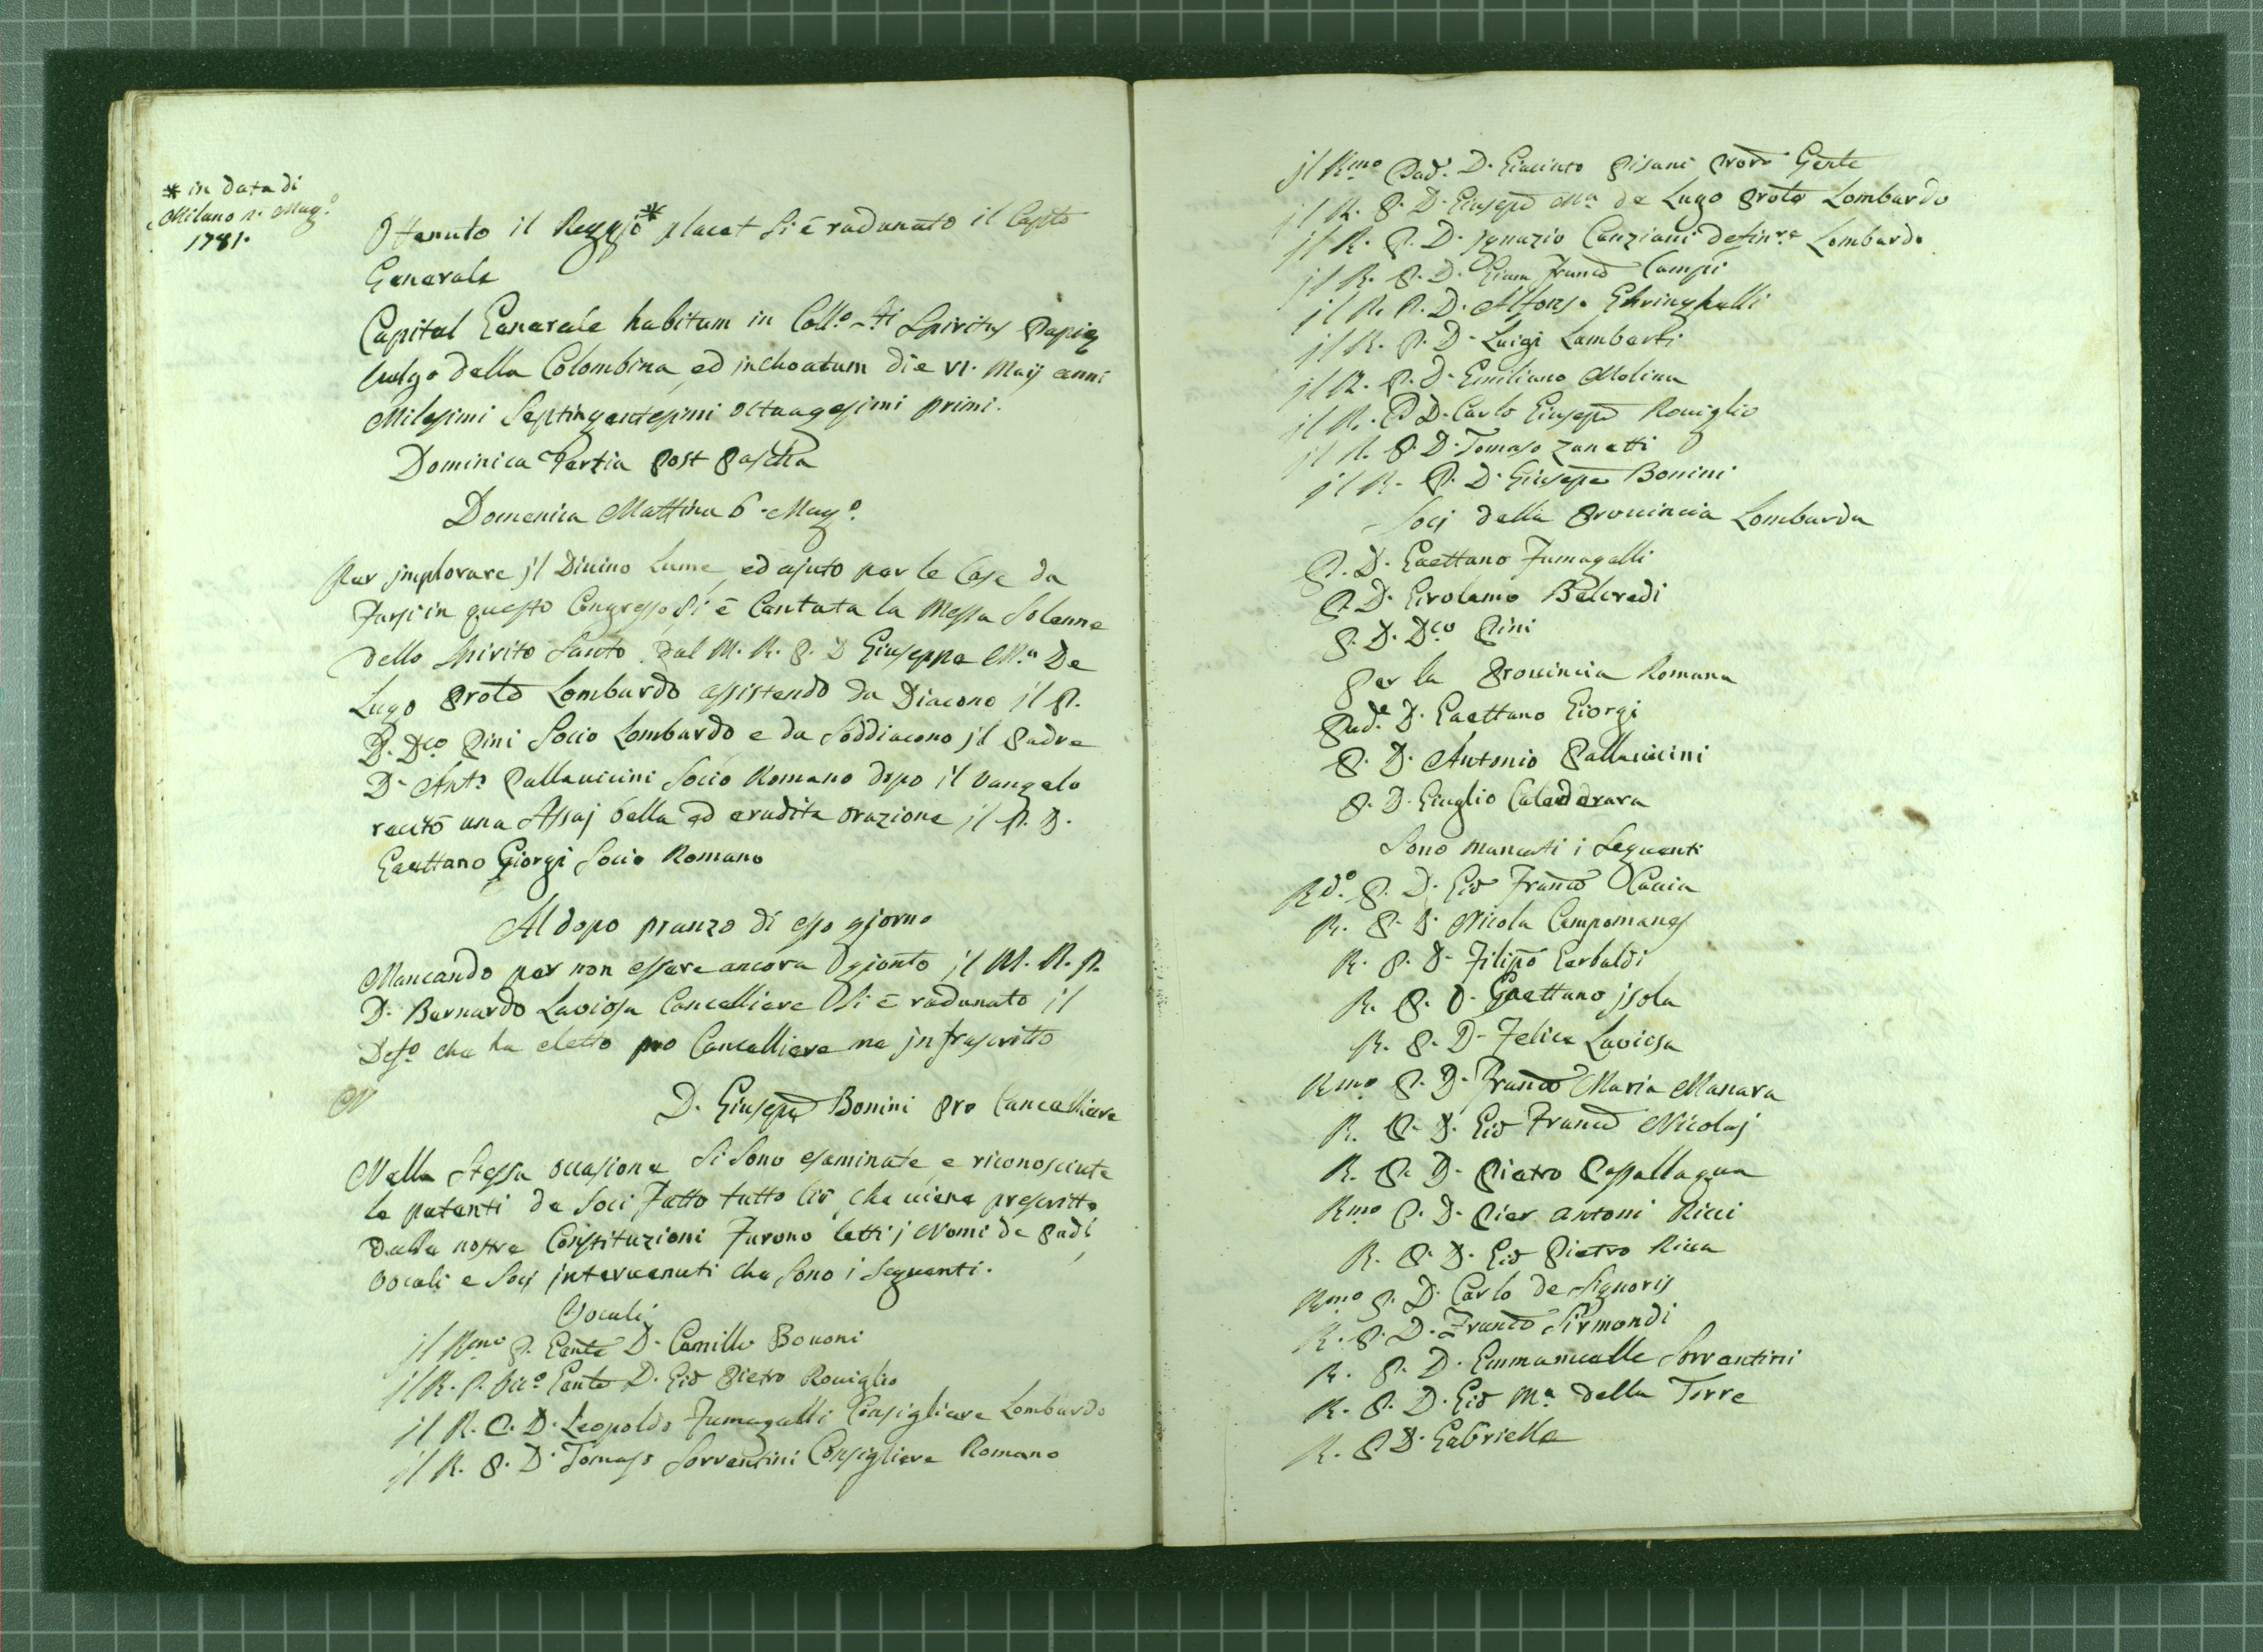 * in data di
Milano 2. Mag.º
1781.
Ottenuto il Reggio* placet si è radunato il Capto
Generale
Capitul Generale habitum in Coll.º Sti Spiritus Papiæ
vulgo della Colombina, ed inchoatum die VI. Maij anni
Milesimi Septingentesimi octuagesimi primi.
Dominica Tertia post Pascha
Domenica Mattina 6. Mag.º
Per jmplorare jl Divino Lume, ed ajuto per le Cose da
Farsi in questo Congresso, si è Cantata la Messa Solenne
dello Spirito Santo dal M. R. P. D Giuseppe M.a De
Lugo Prolo Lombardo assistendo da Diacono jl P.
D. Dco Pini Socio Lombardo e da Soddiacono jl Padre
D. Anto Pallavicini Socio Romano dopo il Vangelo
recitò una Assaj bella ed erudita orazione jl P. D.
Gaettano Giorgi Socio Romano
Al dopo pranzo di esso gjorno
Mancando per non essere ancora gjonto jl M. R. P.
D. Bernardo Laviosa Cancelliere si è radunato il
Defo che ha eletto pro Cancelliere me jnfrascritto
N
D. Giusepe Bonini Pro Cancelliere
Nella Stessa occasione Si Sono esaminate, e riconosciute
le patenti de Soci Fatto tutto ciò che viene prescritto
dalle nostre Constituzioni Furono letti j Nomi de Padi
Vocali e Socj jntervenuti che Sono i Seguenti.
Vocali
jl Rmo P. Gente D. Camillo Bovoni
jl R. P. Vic.º Gente D. Gio Pietro Roviglio
jl R. P. D. Leopoldo Fumagalli Consigliere Lombardo
jl R. P. D. Tomaso Sorrentini Consigliere Romano
jl Rmo Pad. D. Giacinto Pisani Prore Gente
jl R. P. D. Giusepe M.a de Lugo Prole Lombardo
jl R. P. D. Jgnazio Canziani definre Lombardo
jl R. P. D. Giam Franco Campi
jl R. P. D. Alfonso Ghringhelli
jl R. P. D. Luigi Lamberti
jl R. P. D. Emiliano Molina
jl R. P D. Carlo Giusepe Roviglio
jl R. P. D. Tomaso Zanetti
jl R. P. D. Giusepe Bonini
Socj della Provincia Lombarda
P. D. Gaettano Fumagalli
P. D. Girolamo Belcredi
P. D. Dco Pini
Per la Provincia Romana
Pade D. Gaettano Giorgi
P. D. Antonio Pallavicini
P. D. Giuglio Calederara
Sono mancati i Seguenti
Rdo. P. D. Gio Franco Caccia
R. P. D. Nicola Campomanes
R. P. D. Filipo Gerbaldi
R. P. D. Gaettano jsola
R. P. D. Felice Laviosa
Rmo P. D. Franco Maria Manara
R. P. D. Gio Franco Nicolaj
R. P. D. Pietro Passallaqua
Rmo P. D. Pier Antoni Ricci
R. P. D. Gio Pietro Riva
Rmo P. D. Carlo de Signoris
R. P. D. Franco Sirmondi
R. P. D. Emmanuelle Sorrentini
R. P. D. Gio M.a della Torre
R. P D. Gabrielle